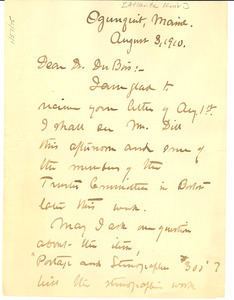 [Atlanta Univ.]
Ogunquit, Maine.
August 3, 1910.
Dear Dr. Du Bois:-
I am glad to
receive your letter of Aug. 1st.
I shall see Mr. Dill
this afternoon and some of
the members of the
Trustee Committee in Boston
later this week.
May I ask one question
about the item
"Postage and Stenographer $300"?
Will the stenographic work